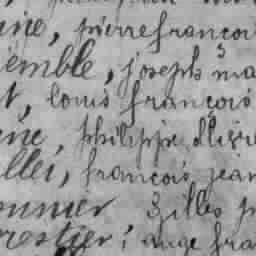 ine, pierre francoi
emble, joseph ma
t, louis francois
ine, philippe olivie
llei, francois jean
onnier gilles p
restier; ange fra